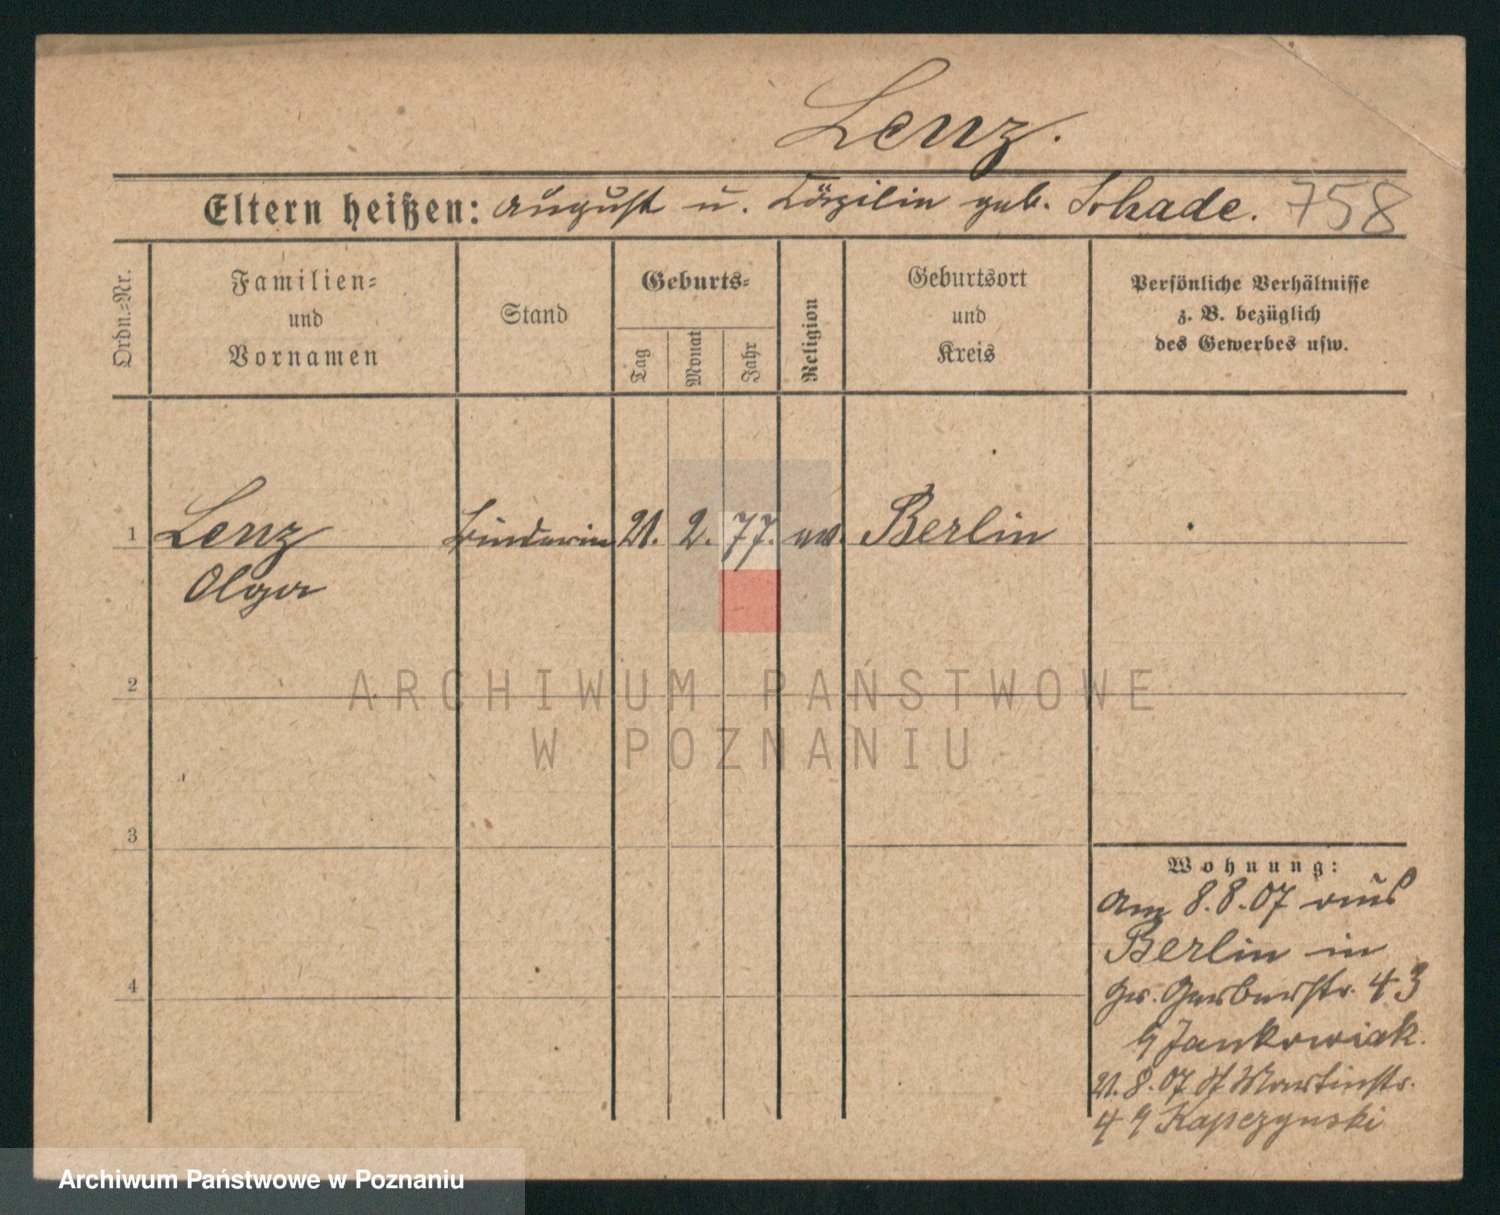 Lenz.
Eltern heißen: August u. Cäzilie geb. Schade. 758
Ordn.-Nr.
Familien-
und
Vornamen
Stand
Geburts-
Tag
Monat
Jahr
Religion
Geburtsort
und
Kreis
Persönliche Verhältnisse
z. B. bezüglich
des Gewerbes usw.
1 Lenz Binderin 21. 2. 77. ev. Berlin
Olga
2
ARCHIWUM PAŃSTWOWE
W POZNANIU
3
Wohnung:
Am 8.8.07 aus
Berlin in
Gr. Gerberstr. 43
Jankowiak.
21.8.07 St Martinstr.
4 Kapczynski
4
Archiwum Państwowe w Poznaniu